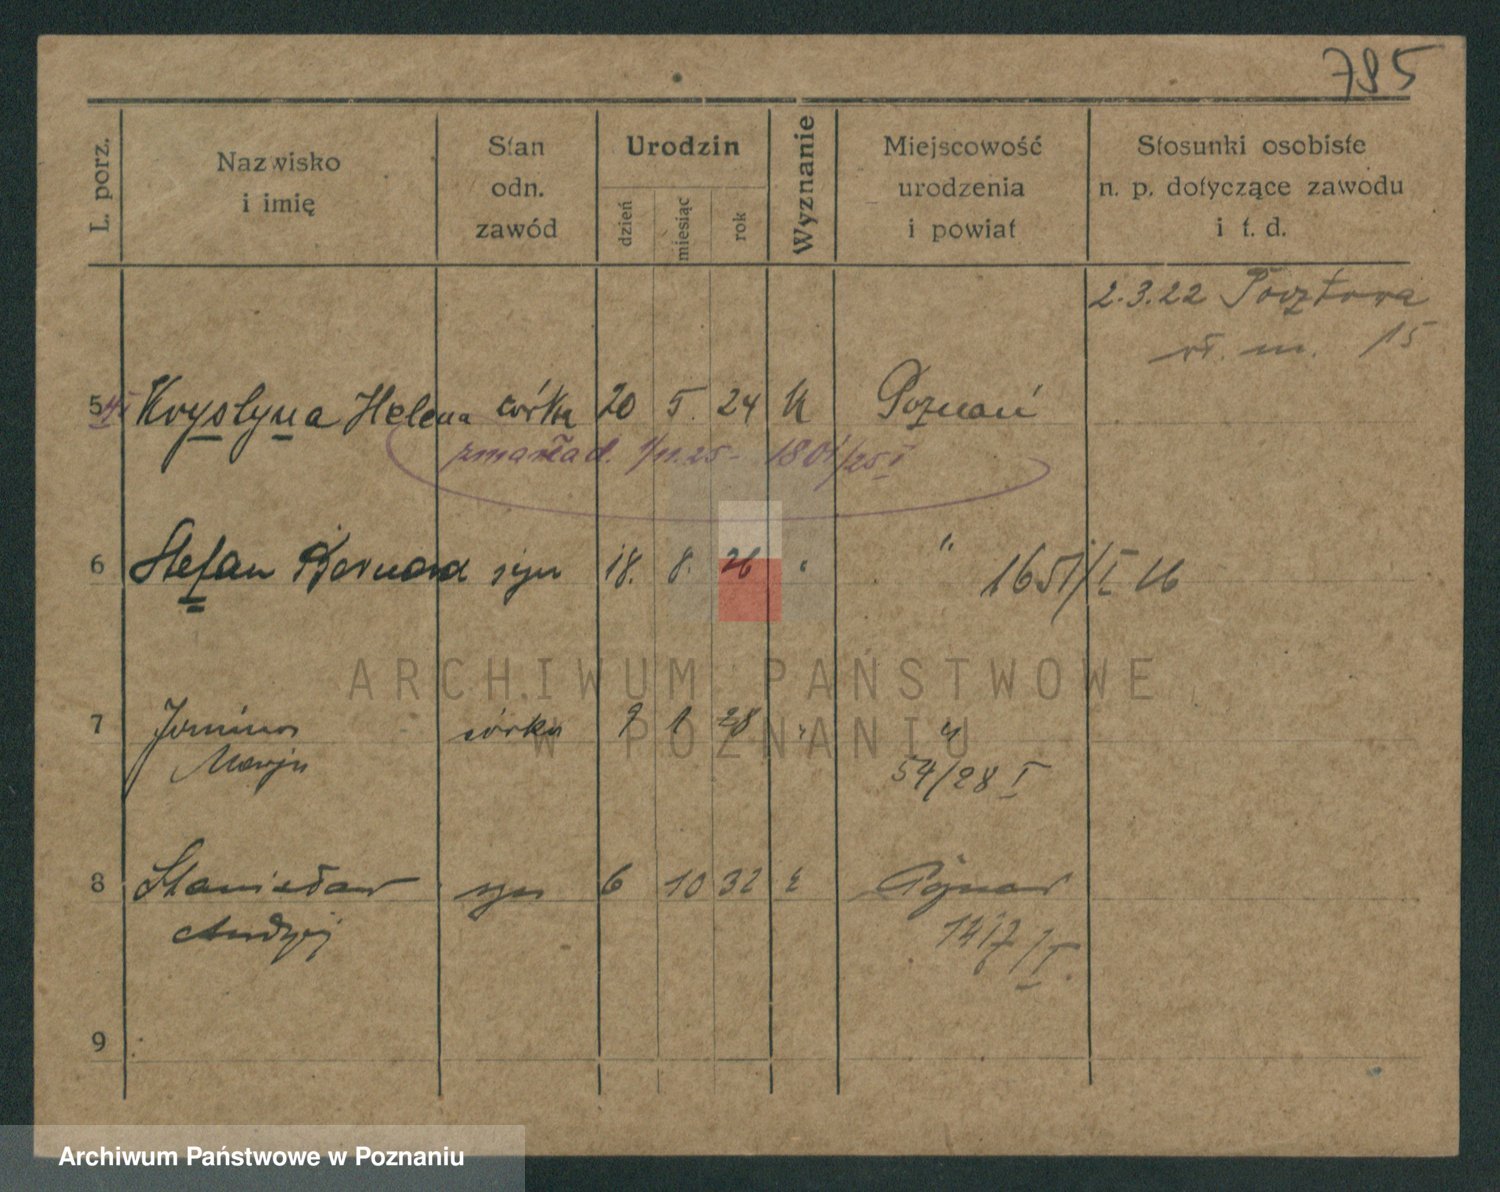 785
L. porz.
Nazwisko
i imię
Stan
odn.
zawód
Urodzin
dzień
miesiąc
rok
Wyznanie
Miejscowość
urodzenia
i powiat
Stosunki osobiste
n. p. dotyczące zawodu
i t. d.
2.3.22 Pocztowa
m. 15
5 Krystyna Helena córka 20 5. 24 k Poznań
zmarła d. 1/11.25 - 1801/25 I
6 Stefan Bernard syn 18. 8. 26 " "
1651/I 26
7 córka 9 1 28 " "
Marja
54/28 I
8 Stanisław syn 6 10 32 k Poznań
Andrzej
1417/I
9
ARCHIWUM PAŃSTWOWE
W POZNANIU
Archiwum Państwowe w Poznaniu